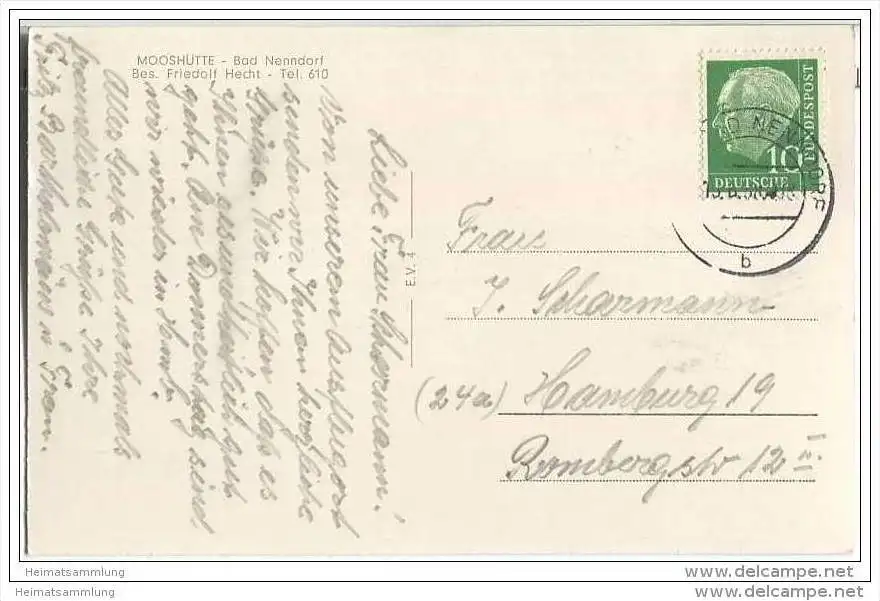 MOOSHÜTTE - Bad Nenndorf
Bes. Friedolf Hecht - Tel. 610
Liebe Frau Scharmann!
Von unserem Ausflugsort
senden wir Ihnen herzliche
Grüße. Wir hoffen das es
Ihnen gesundheitlich gut
geht. Am Donnerstag sind
wir wieder in Hmbg.
Alles Gute und nochmals
freundliche Grüße Ihre
Fritz Bartholomäus u Frau.
E.V. 4
10
DEUTSCHE
BUNDESPOST
b
Frau
J. Scharmann
(24a) Hamburg 19
Rombergstr 12 II.
Heimatsammlung
www.delcampe.net
Heimatsammlung
www.delcampe.net